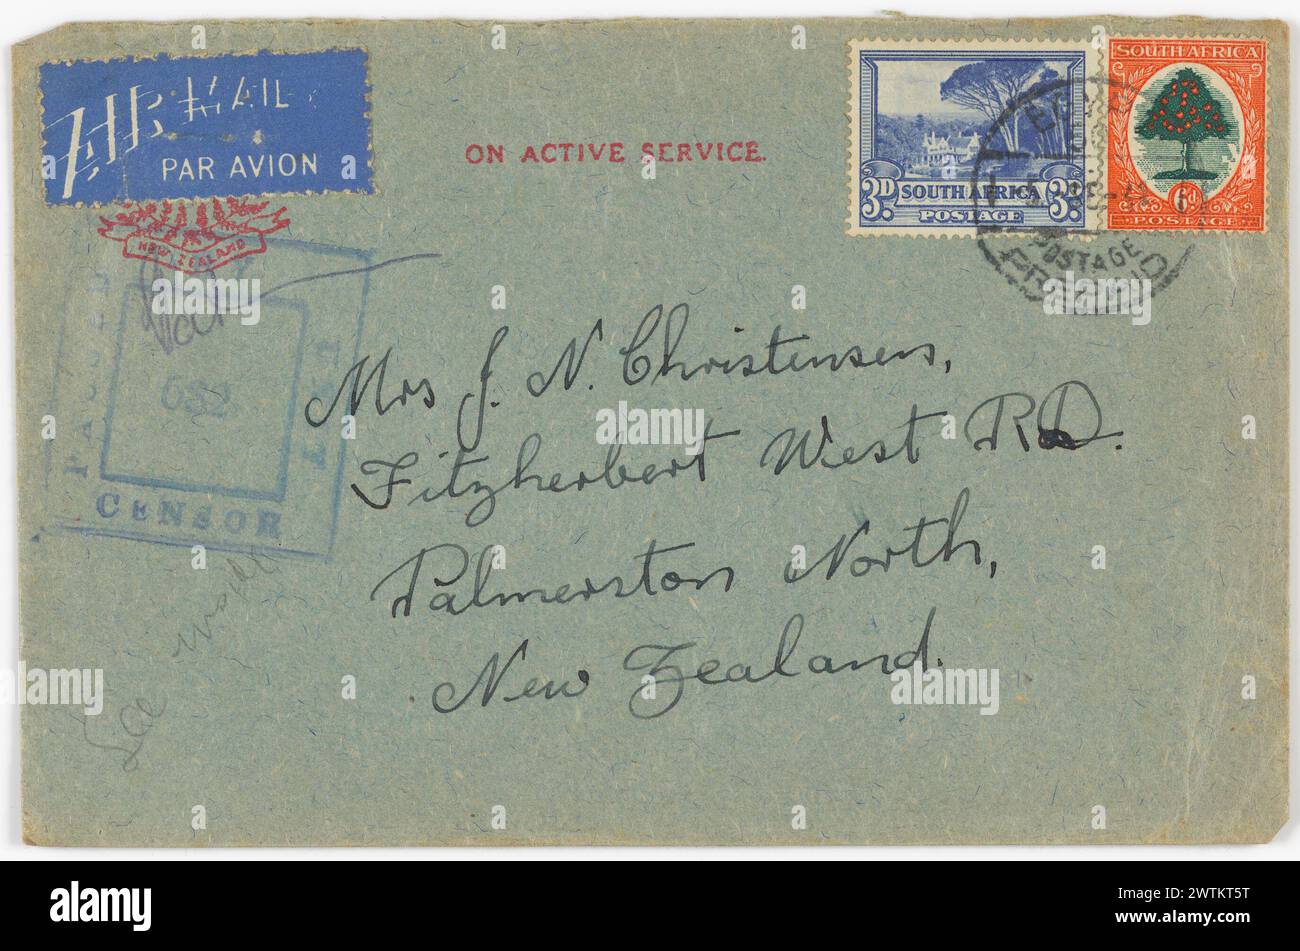 AIR MAIL
PAR AVION
NEW ZEALAND
ON ACTIVE SERVICE.
3D SOUTH AFRICA 3D
POSTAGE
SOUTH AFRICA
6D
POSTAGE
EGYPT
POSTAGE
PREPAID
PASSED
CENSOR
Mrs J. N. Christensen,
Fitzherbert West RD.
Palmerston North,
New Zealand.
a alamy
alamy
Image ID: 2WTKT5T
www.alamy.com